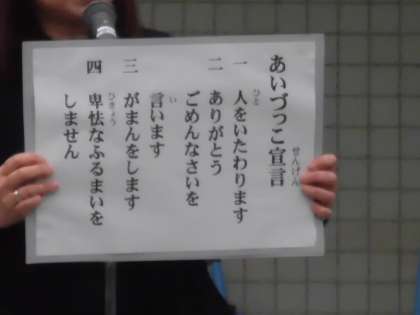 あいづっこ宣言
一 人をいたわります
二 ありがとう
ごめんなさいを
言います
三 がまんをします
四 卑怯なふるまいを
しません